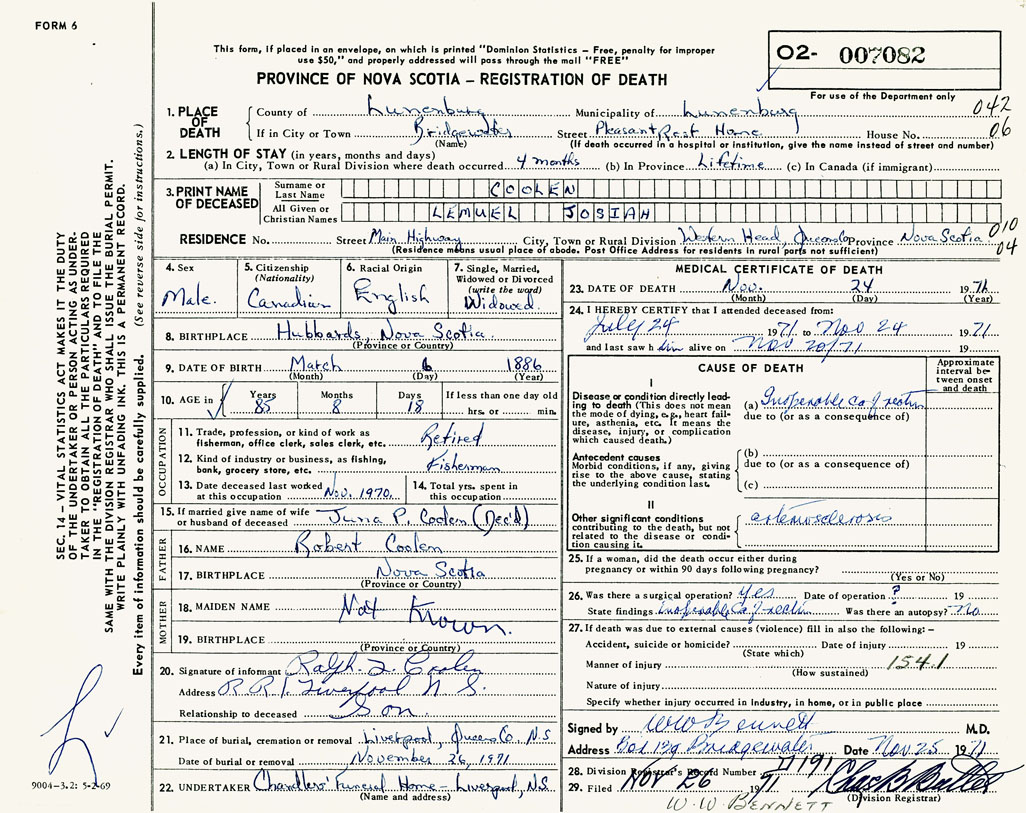 FORM 6
This form, if placed in an envelope, on which is printed "Dominion Statistics – Free, penalty for improper
use $50," and properly addressed will pass through the mail "FREE"
PROVINCE OF NOVA SCOTIA – REGISTRATION OF DEATH
02- 007082
For use of the Department only
SEC. 14 – VITAL STATISTICS ACT MAKES IT THE DUTY
OF THE UNDERTAKER OR PERSON ACTING AS UNDER-
TAKER TO OBTAIN ALL THE PARTICULARS REQUIRED
IN THE "REGISTRATION OF DEATH" AND TO FILE THE
SAME WITH THE DIVISION REGISTRAR WHO SHALL ISSUE THE BURIAL PERMIT.
WRITE PLAINLY WITH UNFADING INK. THIS IS A PERMANENT RECORD.
Every item of information should be carefully supplied. (See reverse side for instructions.)
1. PLACE OF DEATH
County of Lunenburg Municipality of Lunenburg 042
If in City or Town Bridgewater Street Pleasant Rest Home House No. 06
(Name) (If death occurred in a hospital or institution, give the name instead of street and number)
2. LENGTH OF STAY (in years, months and days)
(a) In City, Town or Rural Division where death occurred 4 months (b) In Province Lifetime (c) In Canada (if immigrant)
3. PRINT NAME OF DECEASED
Surname or Last Name COOLEN
All Given or Christian Names LEMUEL JOSIAH
RESIDENCE No. Street Main Highway City, Town or Rural Division Western Head, Queens Co Province Nova Scotia 010
04
(Residence means usual place of abode. Post Office Address for residents in rural parts not sufficient)
4. Sex
Male.
5. Citizenship
(Nationality)
Canadian
6. Racial Origin
English
7. Single, Married,
Widowed or Divorced
(write the word)
Widowed.
8. BIRTHPLACE Hubbards, Nova Scotia.
(Province or Country)
9. DATE OF BIRTH March 6 1886
(Month) (Day) (Year)
10. AGE in
Years Months Days If less than one day old
85 8 18 hrs. or min.
OCCUPATION
11. Trade, profession, or kind of work as
fisherman, office clerk, sales clerk, etc. Retired
12. Kind of industry or business, as fishing,
bank, grocery store, etc. Fisherman
13. Date deceased last worked
at this occupation Nov. 1970.
14. Total yrs. spent in
this occupation
15. If married give name of wife
or husband of deceased P. Coolen (Dec'd)
FATHER
16. NAME Robert Coolen
17. BIRTHPLACE Nova Scotia
(Province or Country)
MOTHER
18. MAIDEN NAME Not Known.
19. BIRTHPLACE
(Province or Country)
20. Signature of informant Ralph Coolen
Address R.R.1. Liverpool N.S.
Relationship to deceased Son.
21. Place of burial, cremation or removal Liverpool, Queens Co. N.S
Date of burial or removal November 26, 1971
22. UNDERTAKER Chandlers' Funeral Home - Liverpool, N.S
(Name and address)
9004-3.2: 5-2-69
MEDICAL CERTIFICATE OF DEATH
23. DATE OF DEATH Nov. 24 1971
(Month) (Day) (Year)
24. I HEREBY CERTIFY that I attended deceased from:
July 24 1971 to Nov 24 1971
and last saw h im alive on Nov 20/71 19
CAUSE OF DEATH
Approximate
interval be-
tween onset
and death
I
Disease or condition directly lead-
ing to death (This does not mean
the mode of dying, e.g., heart fail-
ure, asthenia, etc. It means the
disease, injury, or complication
which caused death.)
(a) Inoperable Ca of rectum
due to (or as a consequence of)
Antecedent causes
Morbid conditions, if any, giving
rise to the above cause, stating
the underlying condition last.
(b)
due to (or as a consequence of)
(c)
II
Other significant conditions
contributing to the death, but not
related to the disease or condi-
tion causing it.
arteriosclerosis
25. If a woman, did the death occur either during
pregnancy or within 90 days following pregnancy?
(Yes or No)
26. Was there a surgical operation? Yes Date of operation ? 19
State findings Inoperable Ca of rectum Was there an autopsy? No
27. If death was due to external causes (violence) fill in also the following: –
Accident, suicide or homicide? Date of injury 19
(State which)
Manner of injury 154.1
(How sustained)
Nature of injury
Specify whether injury occurred in industry, in home, or in public place
Signed by W W Bennett M.D.
Address Box 139 Bridgewater Date Nov 25 1971
28. Division Registrar's Record Number 191
29. Filed NOV 26 1971
(Division Registrar)
W. W. BENNETT